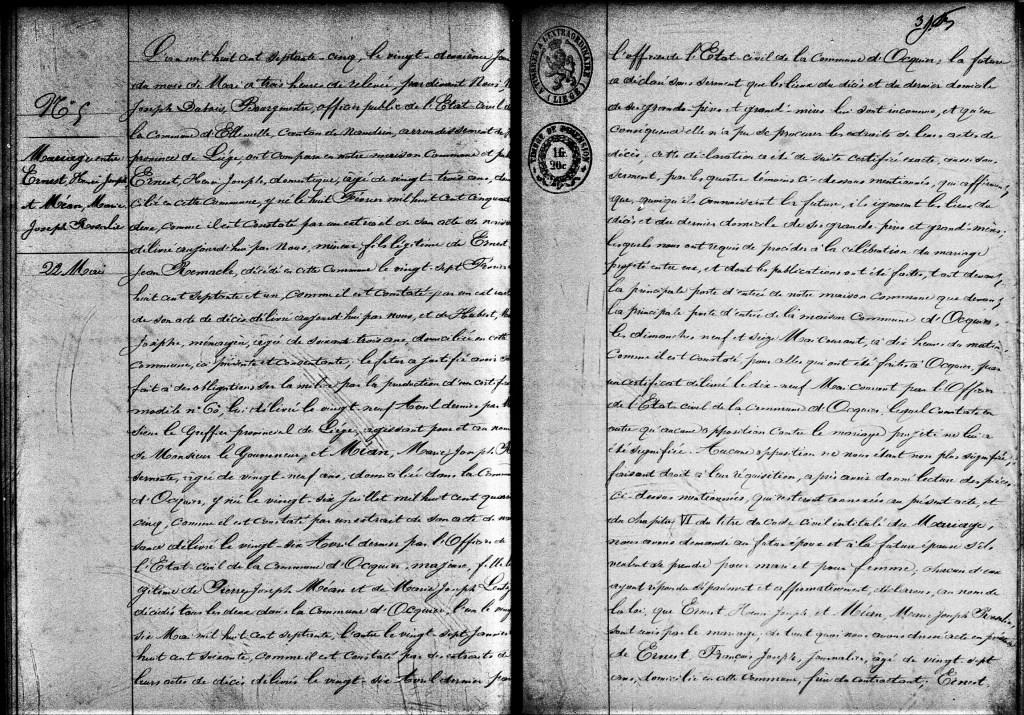 N° 5
Mariage entre
Ernest, Henri Joseph
et Méan, Marie
Joseph Rosalie
22 Mai
L'an mil huit cent septante cinq, le vingt-deuxième jour
du mois de Mai à trois heures de relevée, pardevant Nous
Joseph Bourgmestre, officier public de l'Etat civil de
la Commune d'Ellemelle, Canton de Nandrin, arrondissement de
province de Liége, ont comparu en notre maison Commune et
Ernest, Henri Joseph, domestique, âgé de vingt-trois ans, domi
cilié en cette Commune, y né le huit Février mil huit cent cinquante
deux, comme il est constaté par un extrait de son acte de naissance
délivré aujourd'hui par Nous, mineur, fils légitime de Ernest,
Jean Remacle, décédé en cette Commune le vingt-sept Février
huit cent septante et un, comme il est constaté par un extrait
de son acte de décès délivré aujourd'hui par nous, et de Hubert,
Josèphe, ménagère, âgée de soixante trois ans, domiciliée en cette
Commune, ici présente et consentante, le futur a justifié avoir
fait à ses obligations sur la milice par la production d'un certificat
modèle n° 60, lui délivré le vingt-neuf Avril dernier par
sieur le Greffier provincial de Liége, agissant pour et au nom
de Monsieur le Gouverneur, et Méan, Marie Joseph
servante, âgée de vingt-neuf ans, domiciliée dans la Commune
d'Ocquier, y née le vingt-six Juillet mil huit cent quarante
cinq, comme il est constaté par un extrait de son acte de nais
sance délivré le vingt-six Avril dernier par l'Officier de
l'Etat-civil de la Commune d'Ocquier, majeure, fille lé
gitime de Pierre Joseph Méan et de Marie Joseph
décédés tous les deux dans la Commune d'Ocquier, l'un le vingt
six Mai mil huit cent septante, l'autre le vingt sept Janvier
huit cent soixante, comme il est constaté par des extraits de
leurs actes de décès délivrés le vingt-six Avril dernier par
TIMBRE A L'EXTRAORDINAIRE
( LIEGE )
TIMBRE DE DIMENSION
1 fr.
20c
l'officier de l'Etat civil de la Commune d'Ocquier; la future
a déclaré sous serment que les lieux du décès et du dernier domicile
de ses grands-pères et grand'-mères lui sont inconnus, et qu'en
conséquence elle n'a pu se procurer les extraits de leurs actes de
décès, cette déclaration a été de suite certifiée exacte, aussi sous
serment, par les quatre témoins ci-dessous mentionnés, qui affirment
que, quoiqu'ils connaissent la future, ils ignorent les lieux de
décès et du dernier domicile de ses grands-pères et grand'-mères;
lesquels nous ont requis de procéder à la célébration du mariage
projeté entre eux, et dont les publications ont été faites, tant devant
la principale porte d'entrée de notre maison Commune que devant
la principale porte d'entrée de la maison Commune d'Ocquier,
les dimanches neuf et seize Mai courant, à dix heures du matin,
Comme il est constaté, pour celles qui ont été faites à Ocquier, par
un certificat délivré le dix-neuf Mai Courant par l'Officier
de l'Etat civil de la Commune d'Ocquier, lequel constate en
outre qu'aucune opposition contre le mariage projeté ne lui a
été signifiée. Aucune opposition ne nous étant non plus signifiée,
faisant droit à leur réquisition, après avoir donné lecture des pièces
ci-dessus mentionnées, qui resteront annexées au présent acte, et
du chapitre VI du titre du Code Civil intitulé du Mariage,
nous avons demandé au futur époux et à la future épouse s'ils
veulent se prendre pour mari et pour femme, chacun d'eux
ayant répondu séparément et affirmativement, déclarons, au nom de
la loi, que Ernest Henri Joseph et Méan, Marie Joseph Rosalie,
sont unis par le mariage, de tout quoi nous avons dressé acte en présence
de Ernest François Joseph, Journalier, âgé de vingt-sept
ans, domicilié en cette Commune, frère du contractant; Ernest